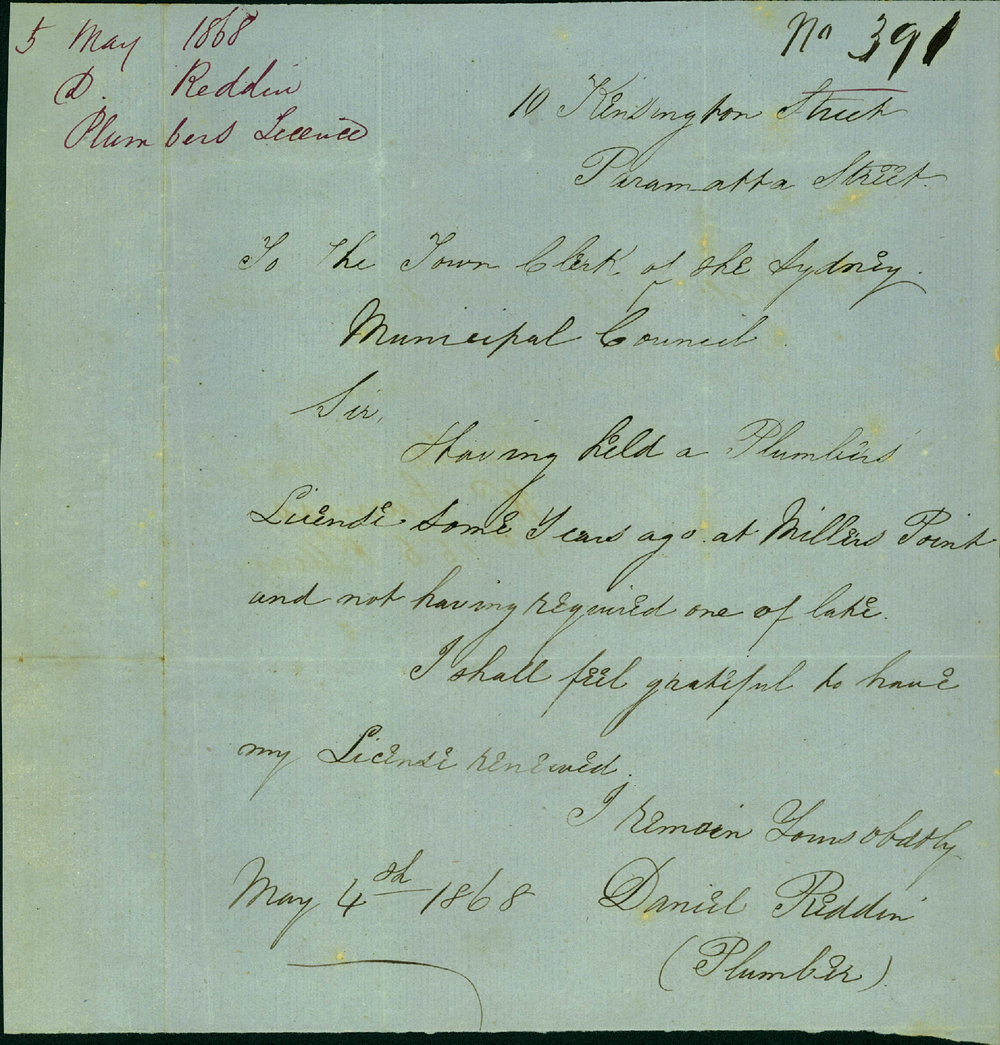 5 May 1868
D. Reddin
Plumbers Licence
No 391
10 Kensington Street
Paramatta Street.
To the Town Clerk of the Sydney.
Municipal Council.
Sir,
Having held a Plumbers
License some Years ago. at Millers Point
and not having required one of late.
I shall feel grateful to have
my License renewed.
I remain Yours obdtly
May 4th 1868 Daniel Reddin
(Plumber).